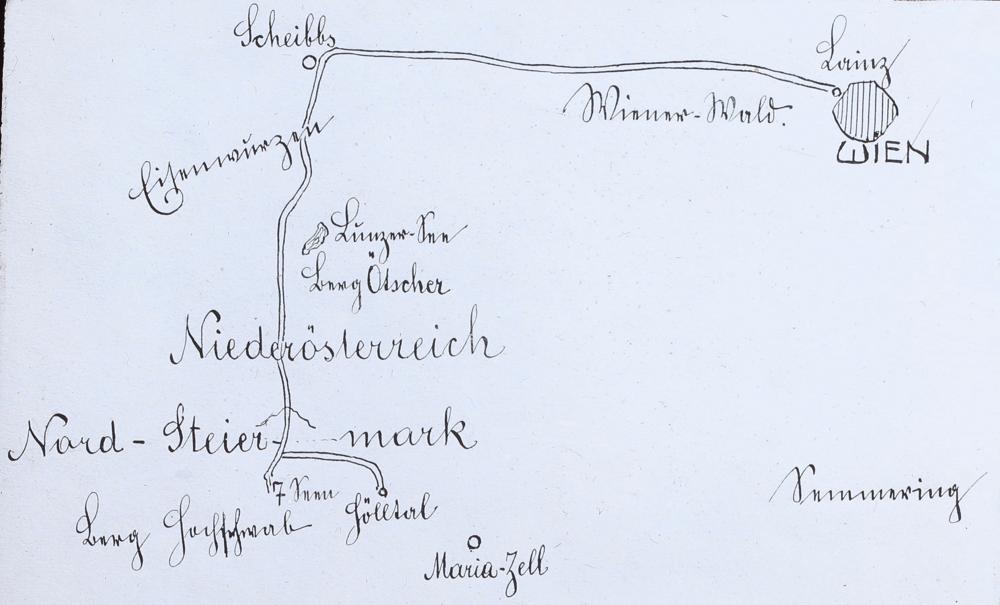 Scheibbs
Lainz
Wiener-Wald.
WIEN
Eisenwurzen
Lunzer-See
Berg Ötscher
Niederösterreich
Nord-Steiermark
7 Seen
Berg Hochschwab
Hölltal
Semmering
Maria-Zell